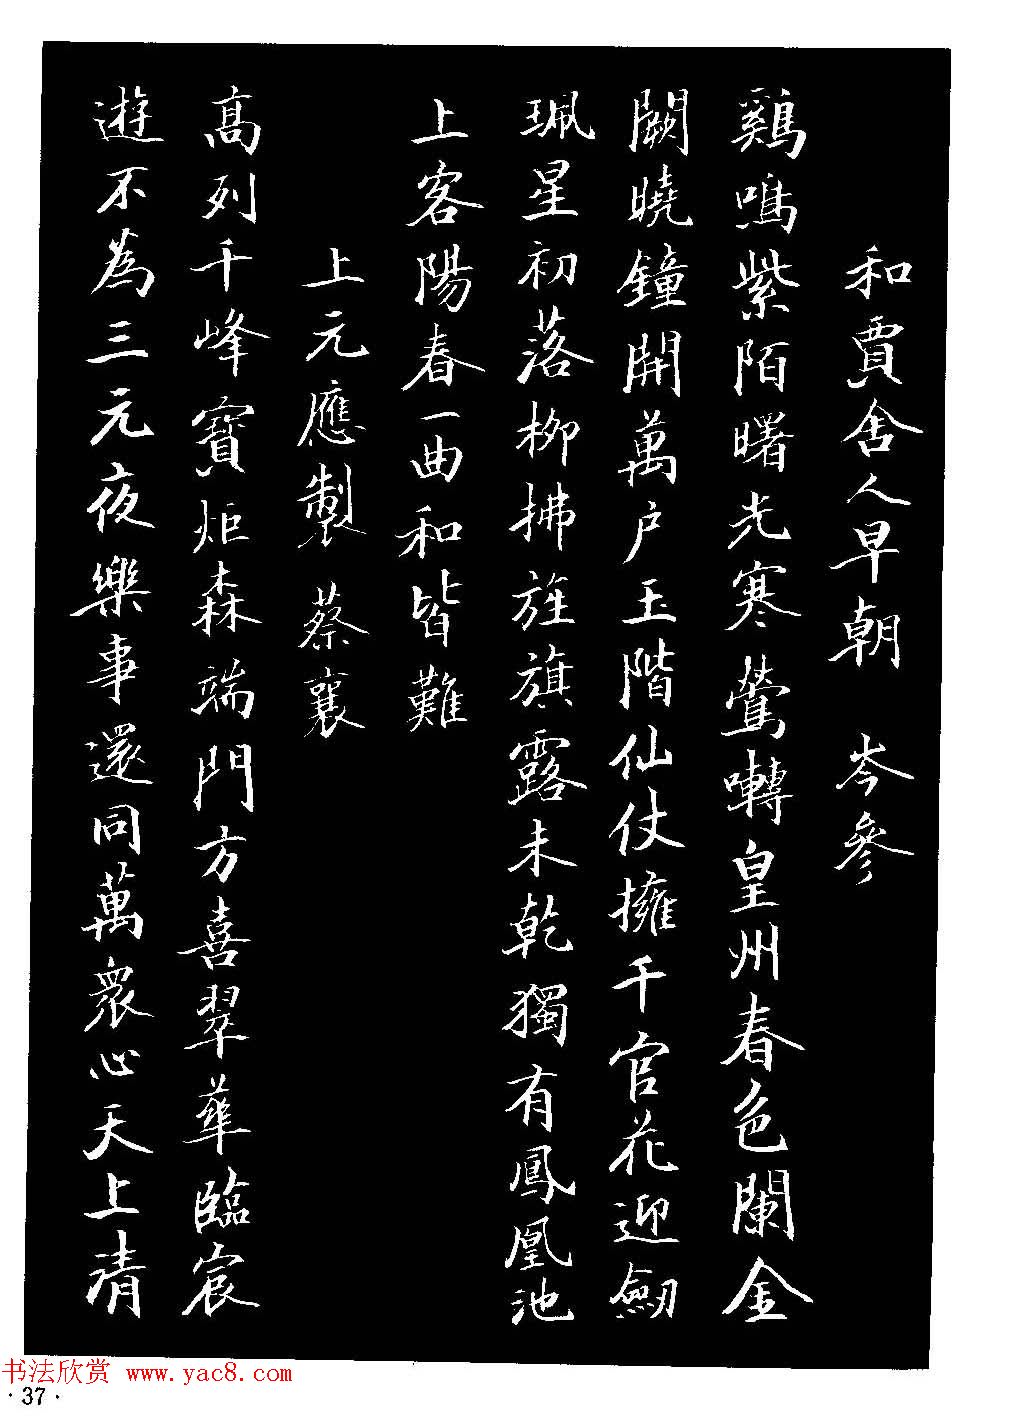 和賈舍人早朝 岑參
鷄鳴紫陌曙光寒鶯囀皇州春色闌金
闕曉鐘開萬户玉階仙仗擁千官花迎劒
珮星初落柳拂旌旗露未乾獨有鳳凰池
上客陽春一曲和皆難
上元應製 蔡襄
高列千峰寶炬森端門方喜翠華臨宸
遊不為三元夜樂事還同萬衆心天上清
书法欣赏 www.yac8.com
·37·